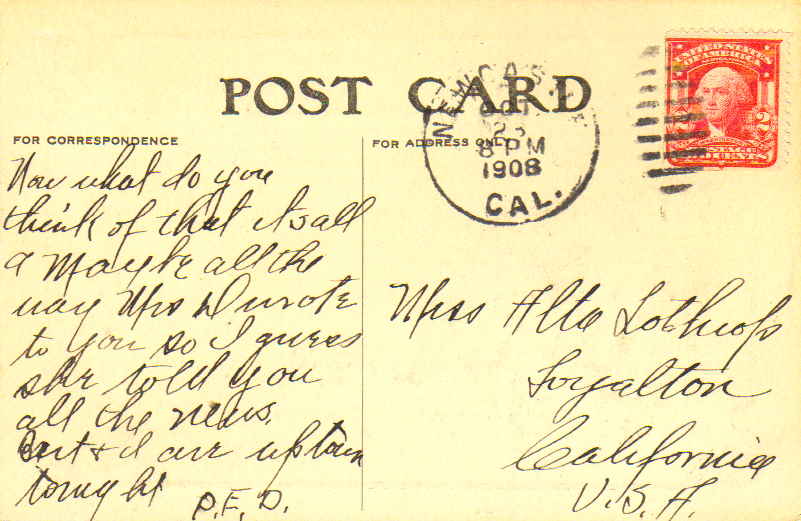 POST CARD
FOR CORRESPONDENCE
FOR ADDRESS ONLY
NEWCASTLE
OCT
8 PM
1908
CAL.
UNITED STATES
OF AMERICA
2
Now what do you
think of that its all
a Maybe all the
way Mrs D wrote
to you so I guess
she told you
all the news.
Bert & I are uptown
tonight
P.E.D.
Miss Alta Lothrop
Loyalton
California
U.S.A.